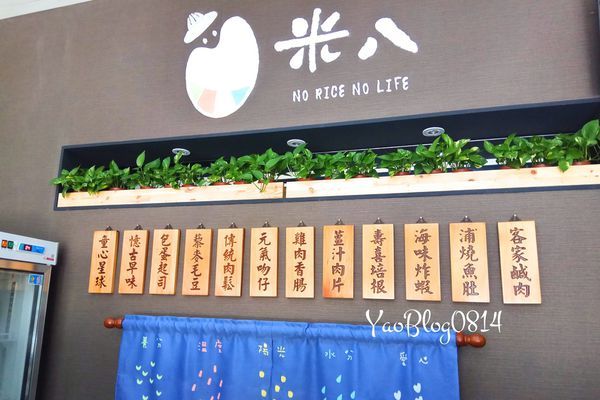 米八
NO RICE NO LIFE
客家鹹肉
浦燒魚肚
海味炸蝦
壽喜培根
薑汁肉片
雞肉香腸
元氣吻仔
傳統肉鬆
藜麥毛豆
包蛋起司
憶古早味
童心星球
YaoBlog0814
養分
溫度
陽光
水分
愛心